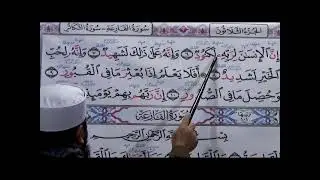 سُورَةُ القَارِعَةِ - سُورَةُ التَّكَاثُرِ الجُزْءُ الثَّلَاثُونَ
إِنَّ الْإِنسَٰنَ لِرَبِّهِ لَكَنُودٌ ٦ وَإِنَّهُ عَلَىٰ ذَٰلِكَ لَشَهِيدٌ ٧ وَإِنَّهُ لِحُبِّ
الْخَيْرِ لَشَدِيدٌ ٨ أَفَلَا يَعْلَمُ إِذَا بُعْثِرَ مَا فِي الْقُبُورِ ٩
وَحُصِّلَ مَا فِي الصُّدُورِ ١٠ إِنَّ رَبَّهُم بِهِمْ يَوْمَئِذٍ
سُورَةُ القَارِعَةِ
بِسْمِ اللَّهِ الرَّحْمَٰنِ الرَّحِيمِ